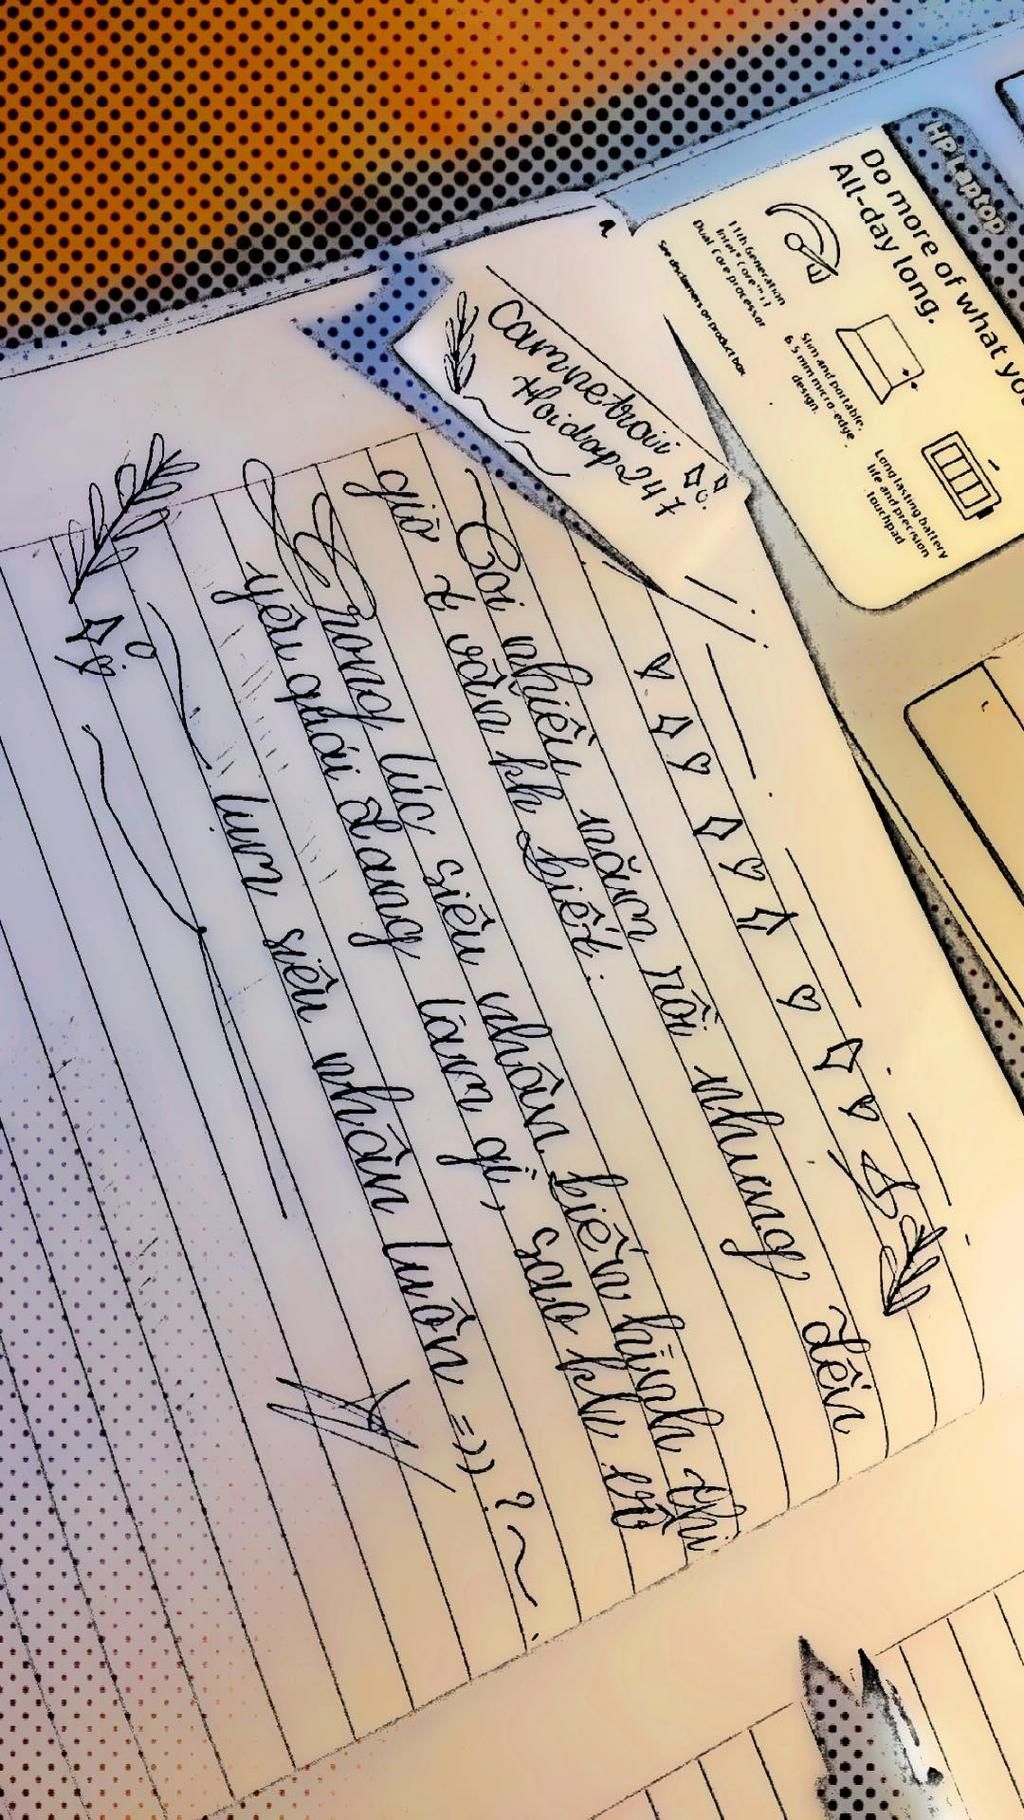 HP Laptop
Do more of what you
All-day long.
11th Generation
Intel® Core™ i7
Dual Core processor
Slim and portable,
6.5 mm micro-edge
design.
Long lasting battery
life and precision
touchpad
See disclaimers on product box
Campetrai
Hoidap247
Coi nhiều năm rồi nhưng đến
giờ t vẫn kh biết.
Trong lúc siêu nhân biến hình thì
yêu quái đang làm gì, sao kh vô
lụm siêu nhân luôn =)) ? ~